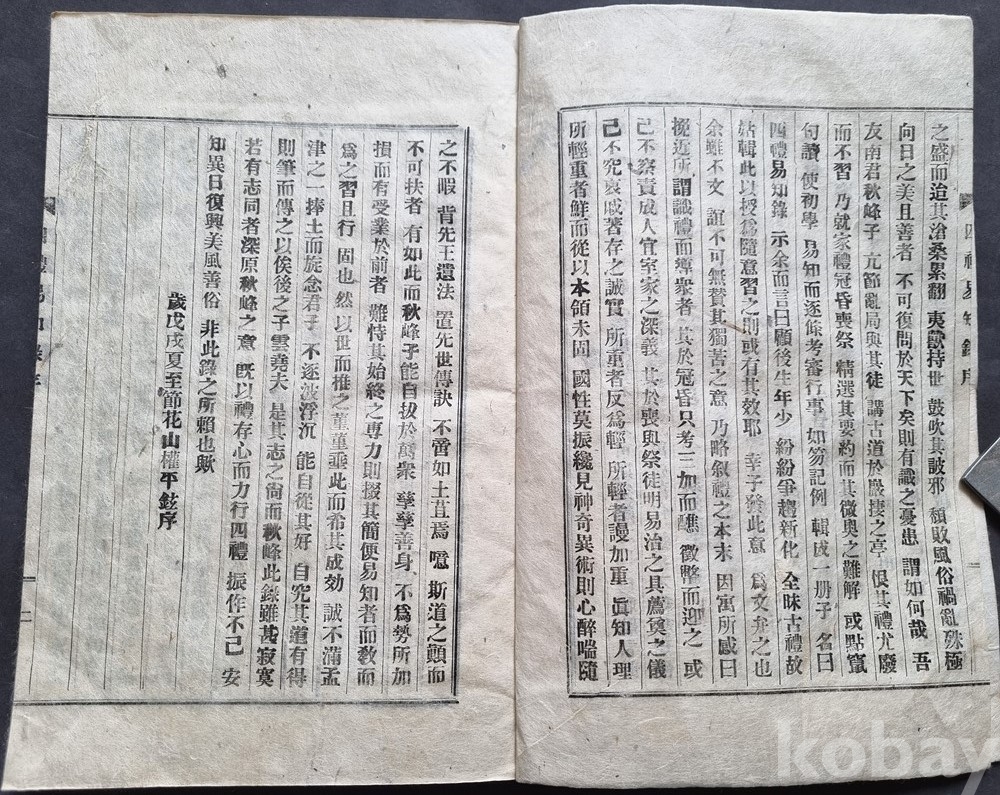 四禮易知錄序
之盛而迨其滄桑累翻 夷歐持世 鼓吹其詖邪 頹敗風俗禍亂殊極
向日之美且善者 不可復問於天下矣則有識之憂患 謂如何哉 吾
友南君秋峰子 亢節亂局與其徒 講古道於嚴捿之亭 恨其禮尤廢
而不習 乃就家禮冠昏喪祭 精選其要約而其微奧之難解 或點竄
句讀 使初學 易知而逐條考審行事 如笏記例 輯成一册子 名曰
四禮易知錄 示余而言曰顧後生年少 紛紛爭趨新化 全昧古禮故
姑輯此以授爲隨意習之則或有其效耶 幸子發此意 爲文弁之也
余雖不文 誼不可無贊其獨苦之意 乃略叙禮之本末 因寓所感曰
挽近所謂識禮而導衆者 其於冠昏只考三加而醮 徵聘而迎之 或
己不察責成人宜室家之深義 其於喪與祭徒明易治之具薦奠之儀
己不究哀戚著存之誠實 所重者反爲輕 所輕者謾加重 眞知人理
所輕重者鮮而從以本領未固 國性莫振纔見神奇異術則心醉喘隨
之不暇 背先王遺法 置先世傳訣 不啻如土苴焉 噫 斯道之顚而
不可扶者 有如此而秋峰子能自拔於衆 孳孳善身 不爲勢所加
損而有受業於前者 難恃其始終之專力則掇其簡便易知者而教而
爲之習且行 固也 然以世而推之董董垂此而希其成効 誠不滿孟
津之一捧土而旋念君子 不逐波浮沉 能自從其好 自究其道有得
則筆而傳之以俟後之子雲堯夫 是其志之尙而秋峰此錄雖甚寂寞
若有志同者深原秋峰之意 既以禮存心而力行四禮 振作不己 安
知異日復興美風善俗 非此錄之所賴也歟
歲戊戌夏至節花山權平鉉序
kobay